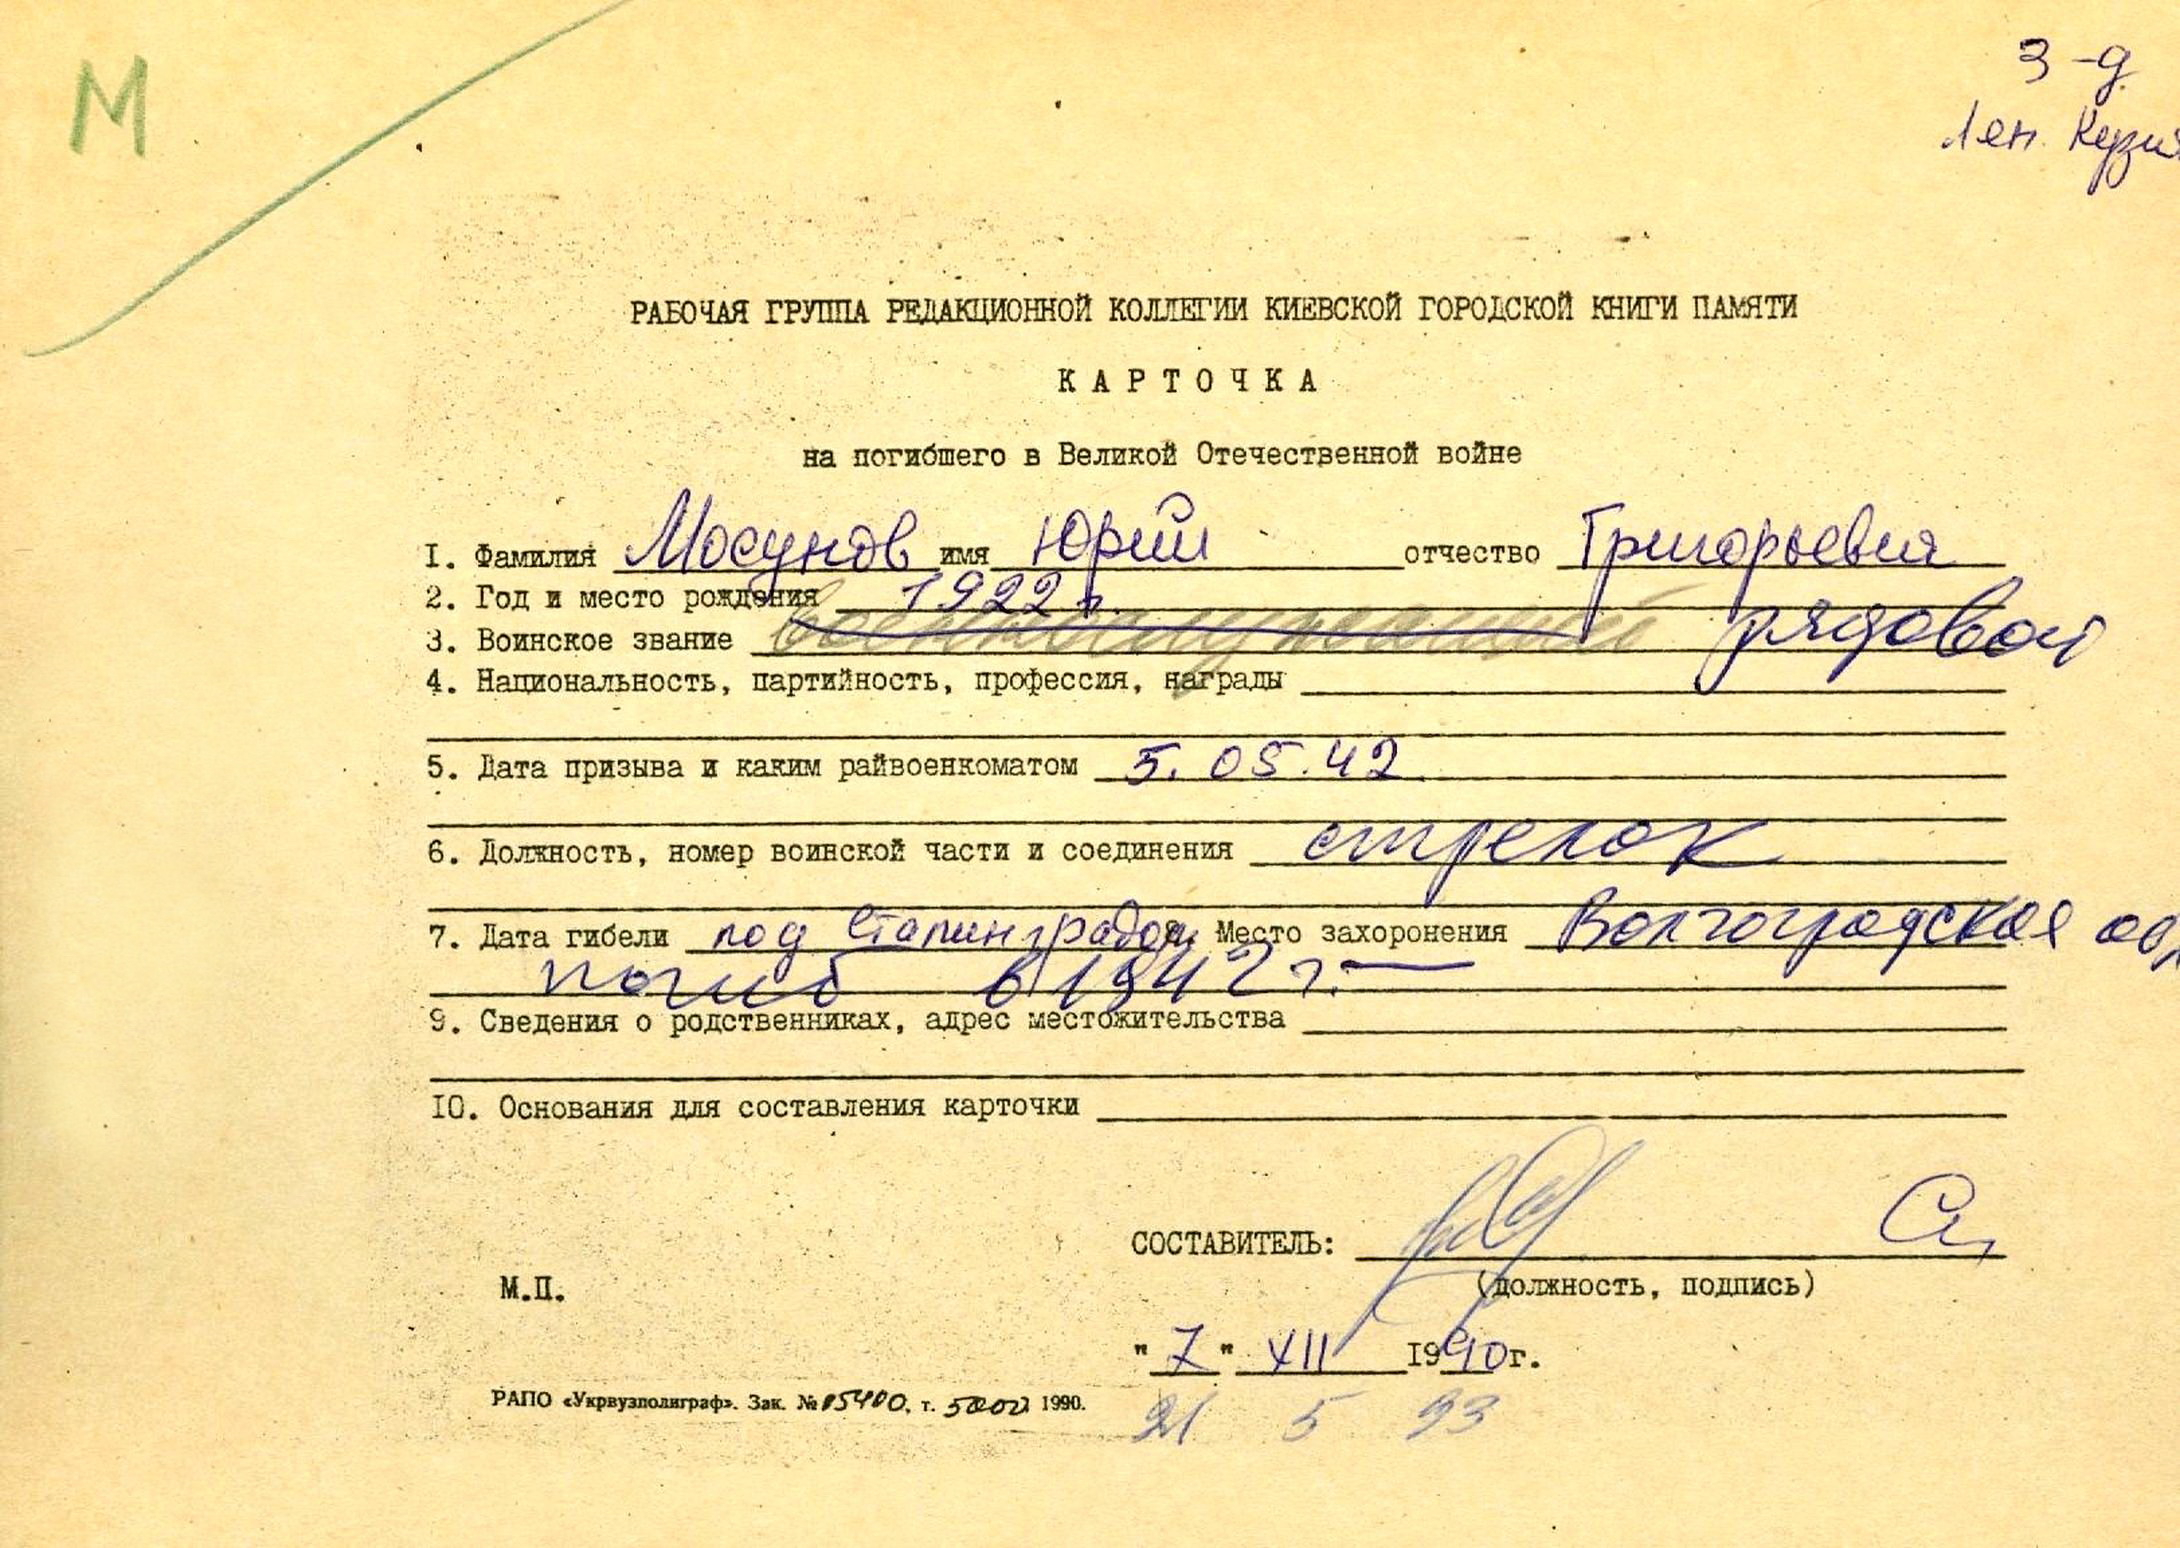 М
З-д
Лен. Кузня
РАБОЧАЯ ГРУППА РЕДАКЦИОННОЙ КОЛЛЕГИИ КИЕВСКОЙ ГОРОДСКОЙ КНИГИ ПАМЯТИ
КАРТОЧКА
на погибшего в Великой Отечественной войне
I. Фамилия Мосунов имя Юрий отчество Григорьевич
2. Год и место рождения 1922 г.
3. Воинское звание военнослужащий рядовой
4. Национальность, партийность, профессия, награды
5. Дата призыва и каким райвоенкоматом 5.05.42
6. Должность, номер воинской части и соединения стрелок
7. Дата гибели под Сталинградом 8. Место захоронения Волгоградская обл
погиб в 1942 г. —
9. Сведения о родственниках, адрес местожительства
IO. Основания для составления карточки
СОСТАВИТЕЛЬ:
(должность, подпись)
М.П.
"7" XII 1990г.
РАПО «Укрвузполиграф». Зак. № 05400, т. 5000 1990.
21 5 93